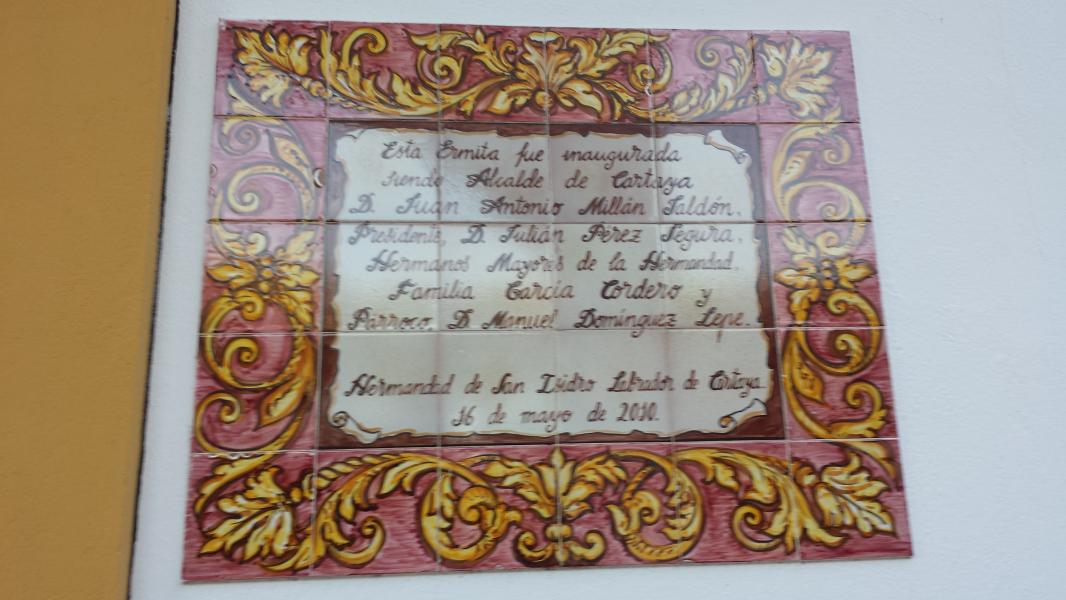 Esta Ermita fue inaugurada
siendo Alcalde de Cartaya
D. Juan Antonio Millán Jaldón.
Presidente, D. Julián Pérez Segura.
Hermanos Mayores de la Hermandad.
Familia García Cordero y
Párroco, D. Manuel Domínguez Lepe.
Hermandad de San Isidro Labrador de Cartaya
16 de mayo de 2010.